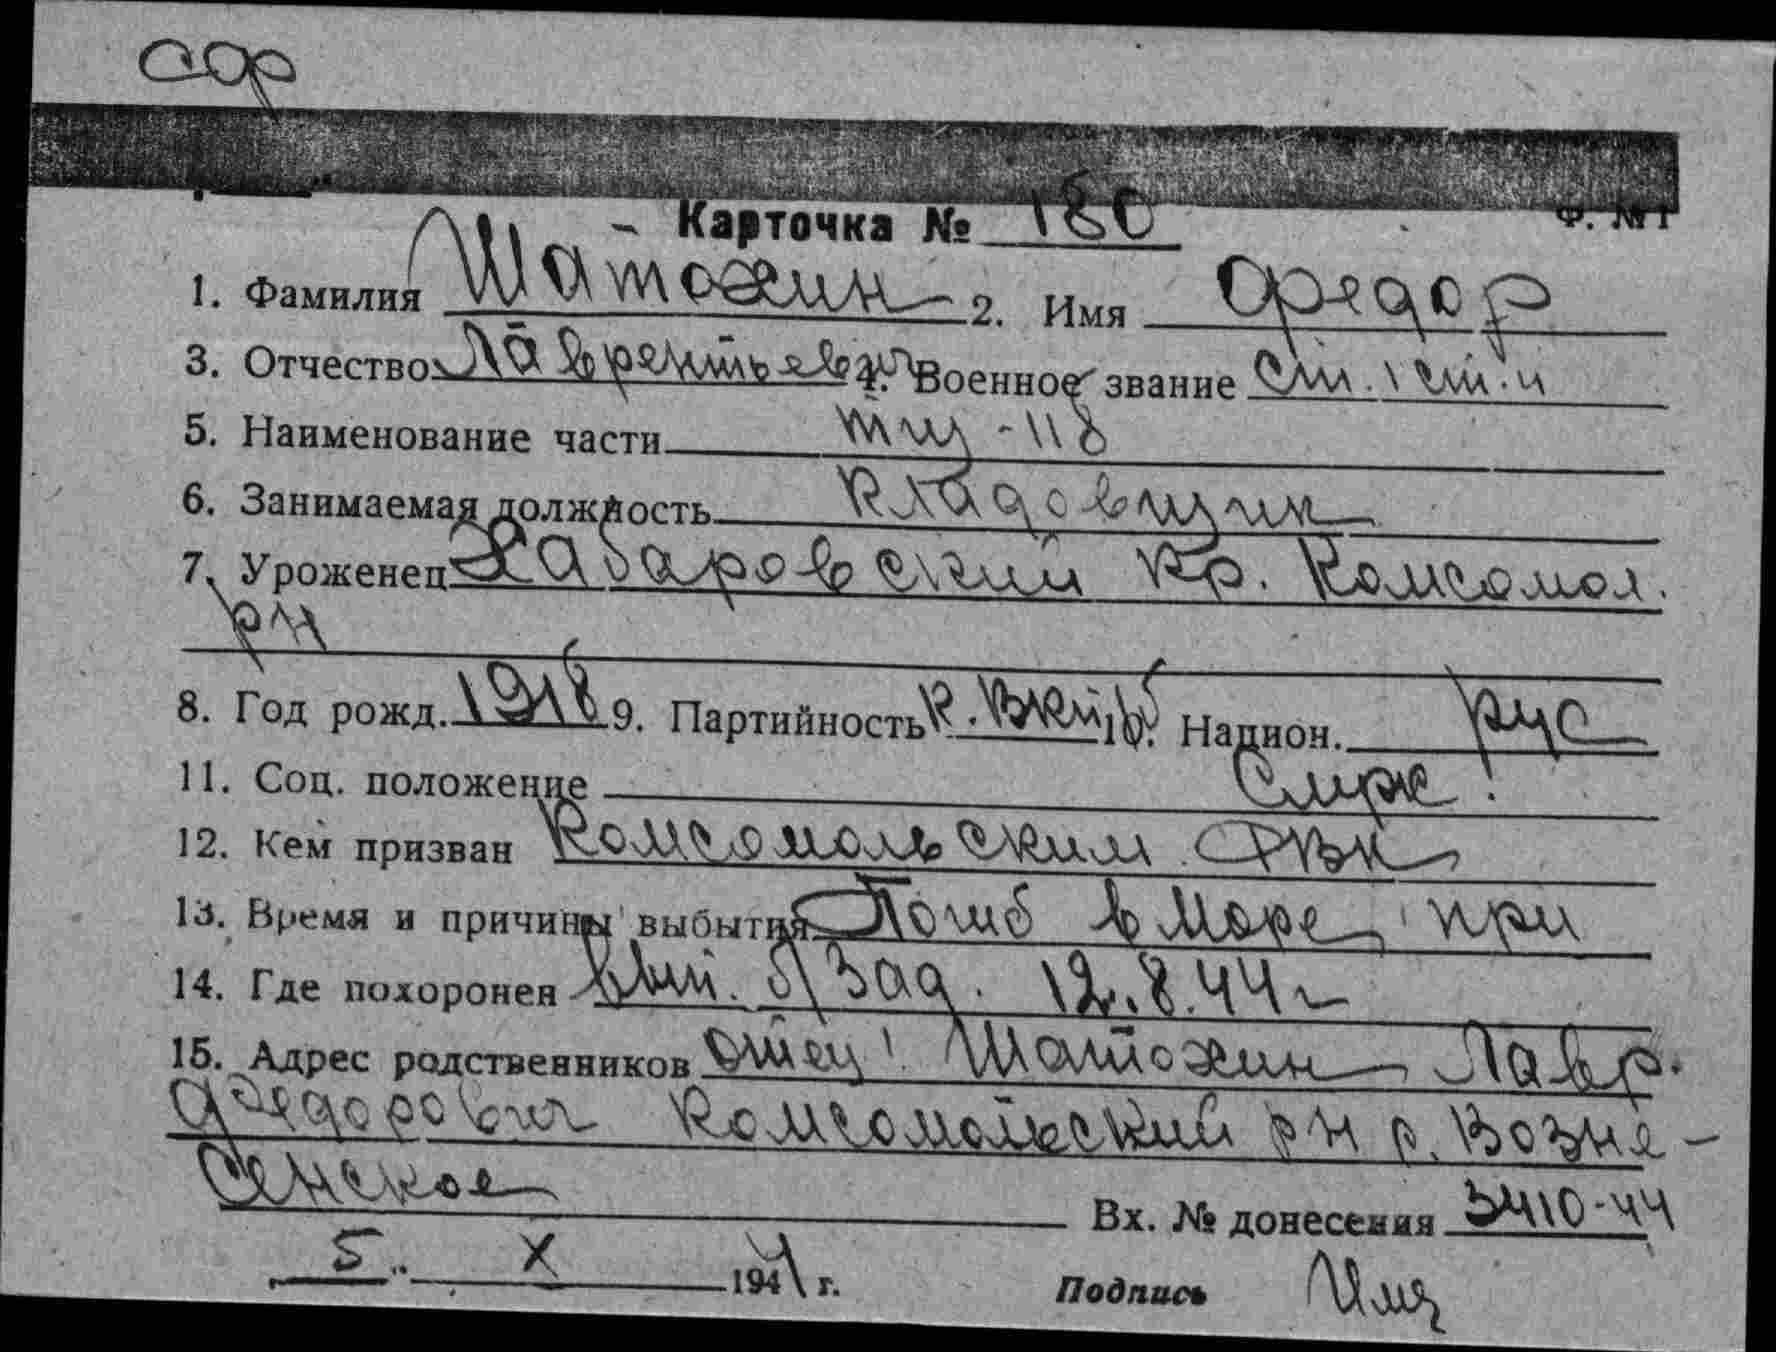 Ф. №1
Карточка № 180
1. Фамилия Шатохин 2. Имя Федор
3. Отчество Лаврентьевич 4. Военное звание ст. 1 ст.
5. Наименование части тщ-118
6. Занимаемая должность кладовщик
7. Уроженец Хабаровский кр. Комсомол.
рн
8. Год рожд. 1918 9. Партийность К. ВКП/б 10. Национ. рус
11. Соц. положение Служ.
12. Кем призван Комсомольским РВК
13. Время и причины выбытия Погиб в море при
14. Где похоронен вып. б/зад. 12.8.44 г
15. Адрес родственников отец: Шатохин Лавр.
Федорович Комсомольский рн с. Возне-
сенское
Вх. № донесения 3410-44
5 X 1944 г. Подпись